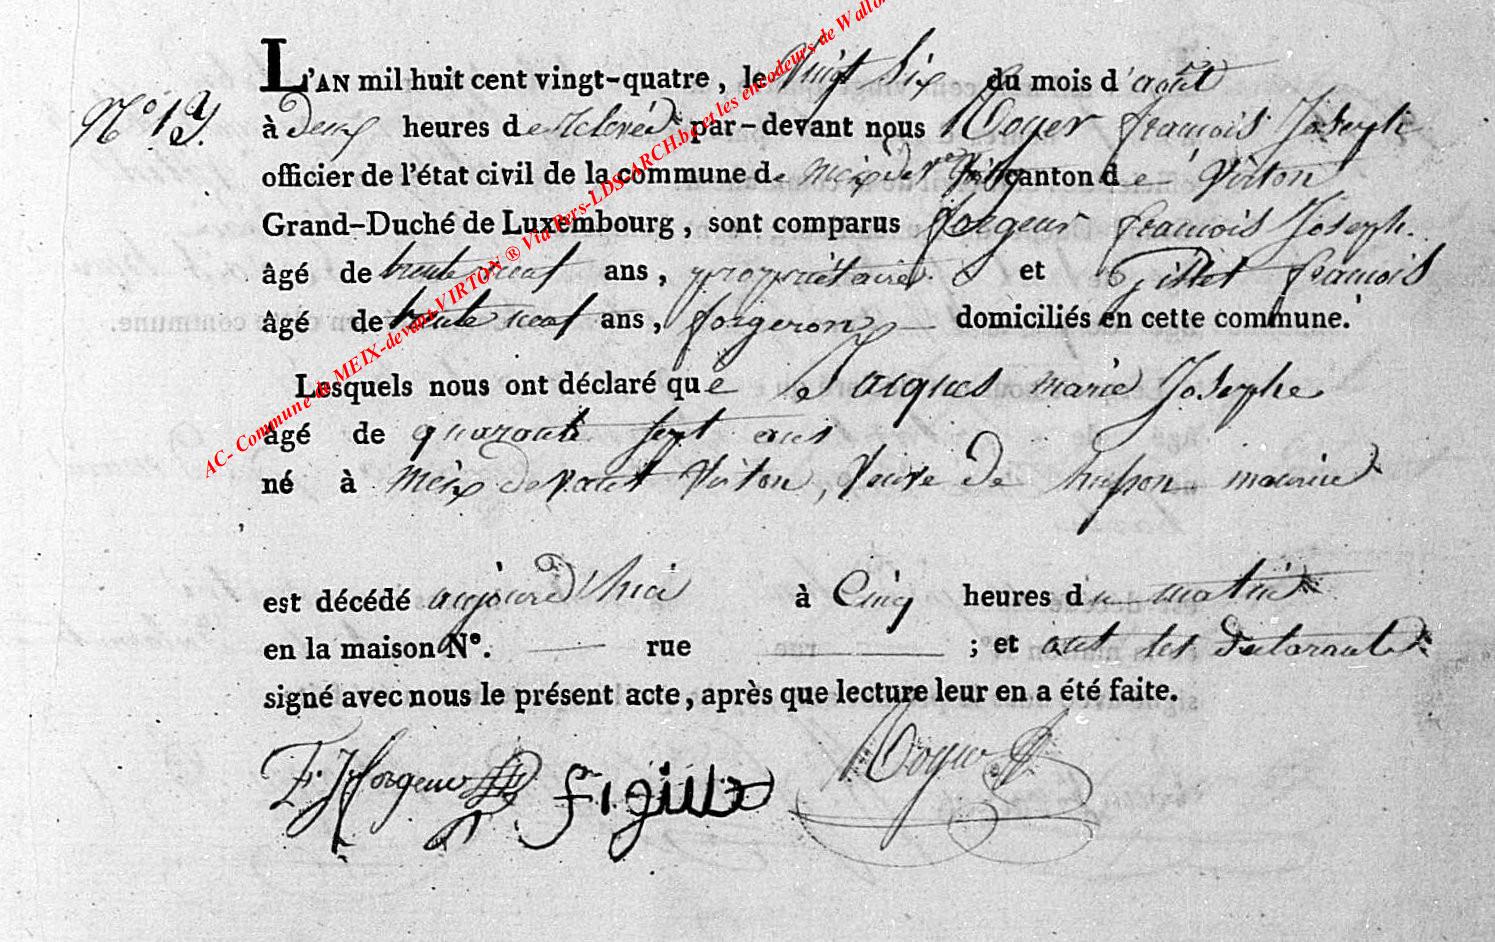 L'AN mil huit cent vingt-quatre, le Vingt Six du mois d'août
N° 19.
à deux heures de relevée par-devant nous Royer francois Joseph
officier de l'état civil de la commune de meix de Vt Virton canton de Virton
Grand-Duché de Luxembourg, sont comparus forgeur francois Joseph.
âgé de trente neuf ans, propriétaire et Gillet francois
âgé de trente neuf ans, forgeron domiciliés en cette commune.
Lesquels nous ont déclaré que Jacques marie Josephe
âgé de quarante sept ans
né à Meix devant Virton, Veuve de husson maurice
est décédé aujourd'hui à Cinq heures du matin
en la maison N°. rue ; et ont les déclarants
signé avec nous le présent acte, après que lecture leur en a été faite.
F. J. forgeur fr gillet Royer
AC- Commune de MEIX-devant-VIRTON ® Via Pers-LDS-ARCH.be et les encodeurs de Wallon